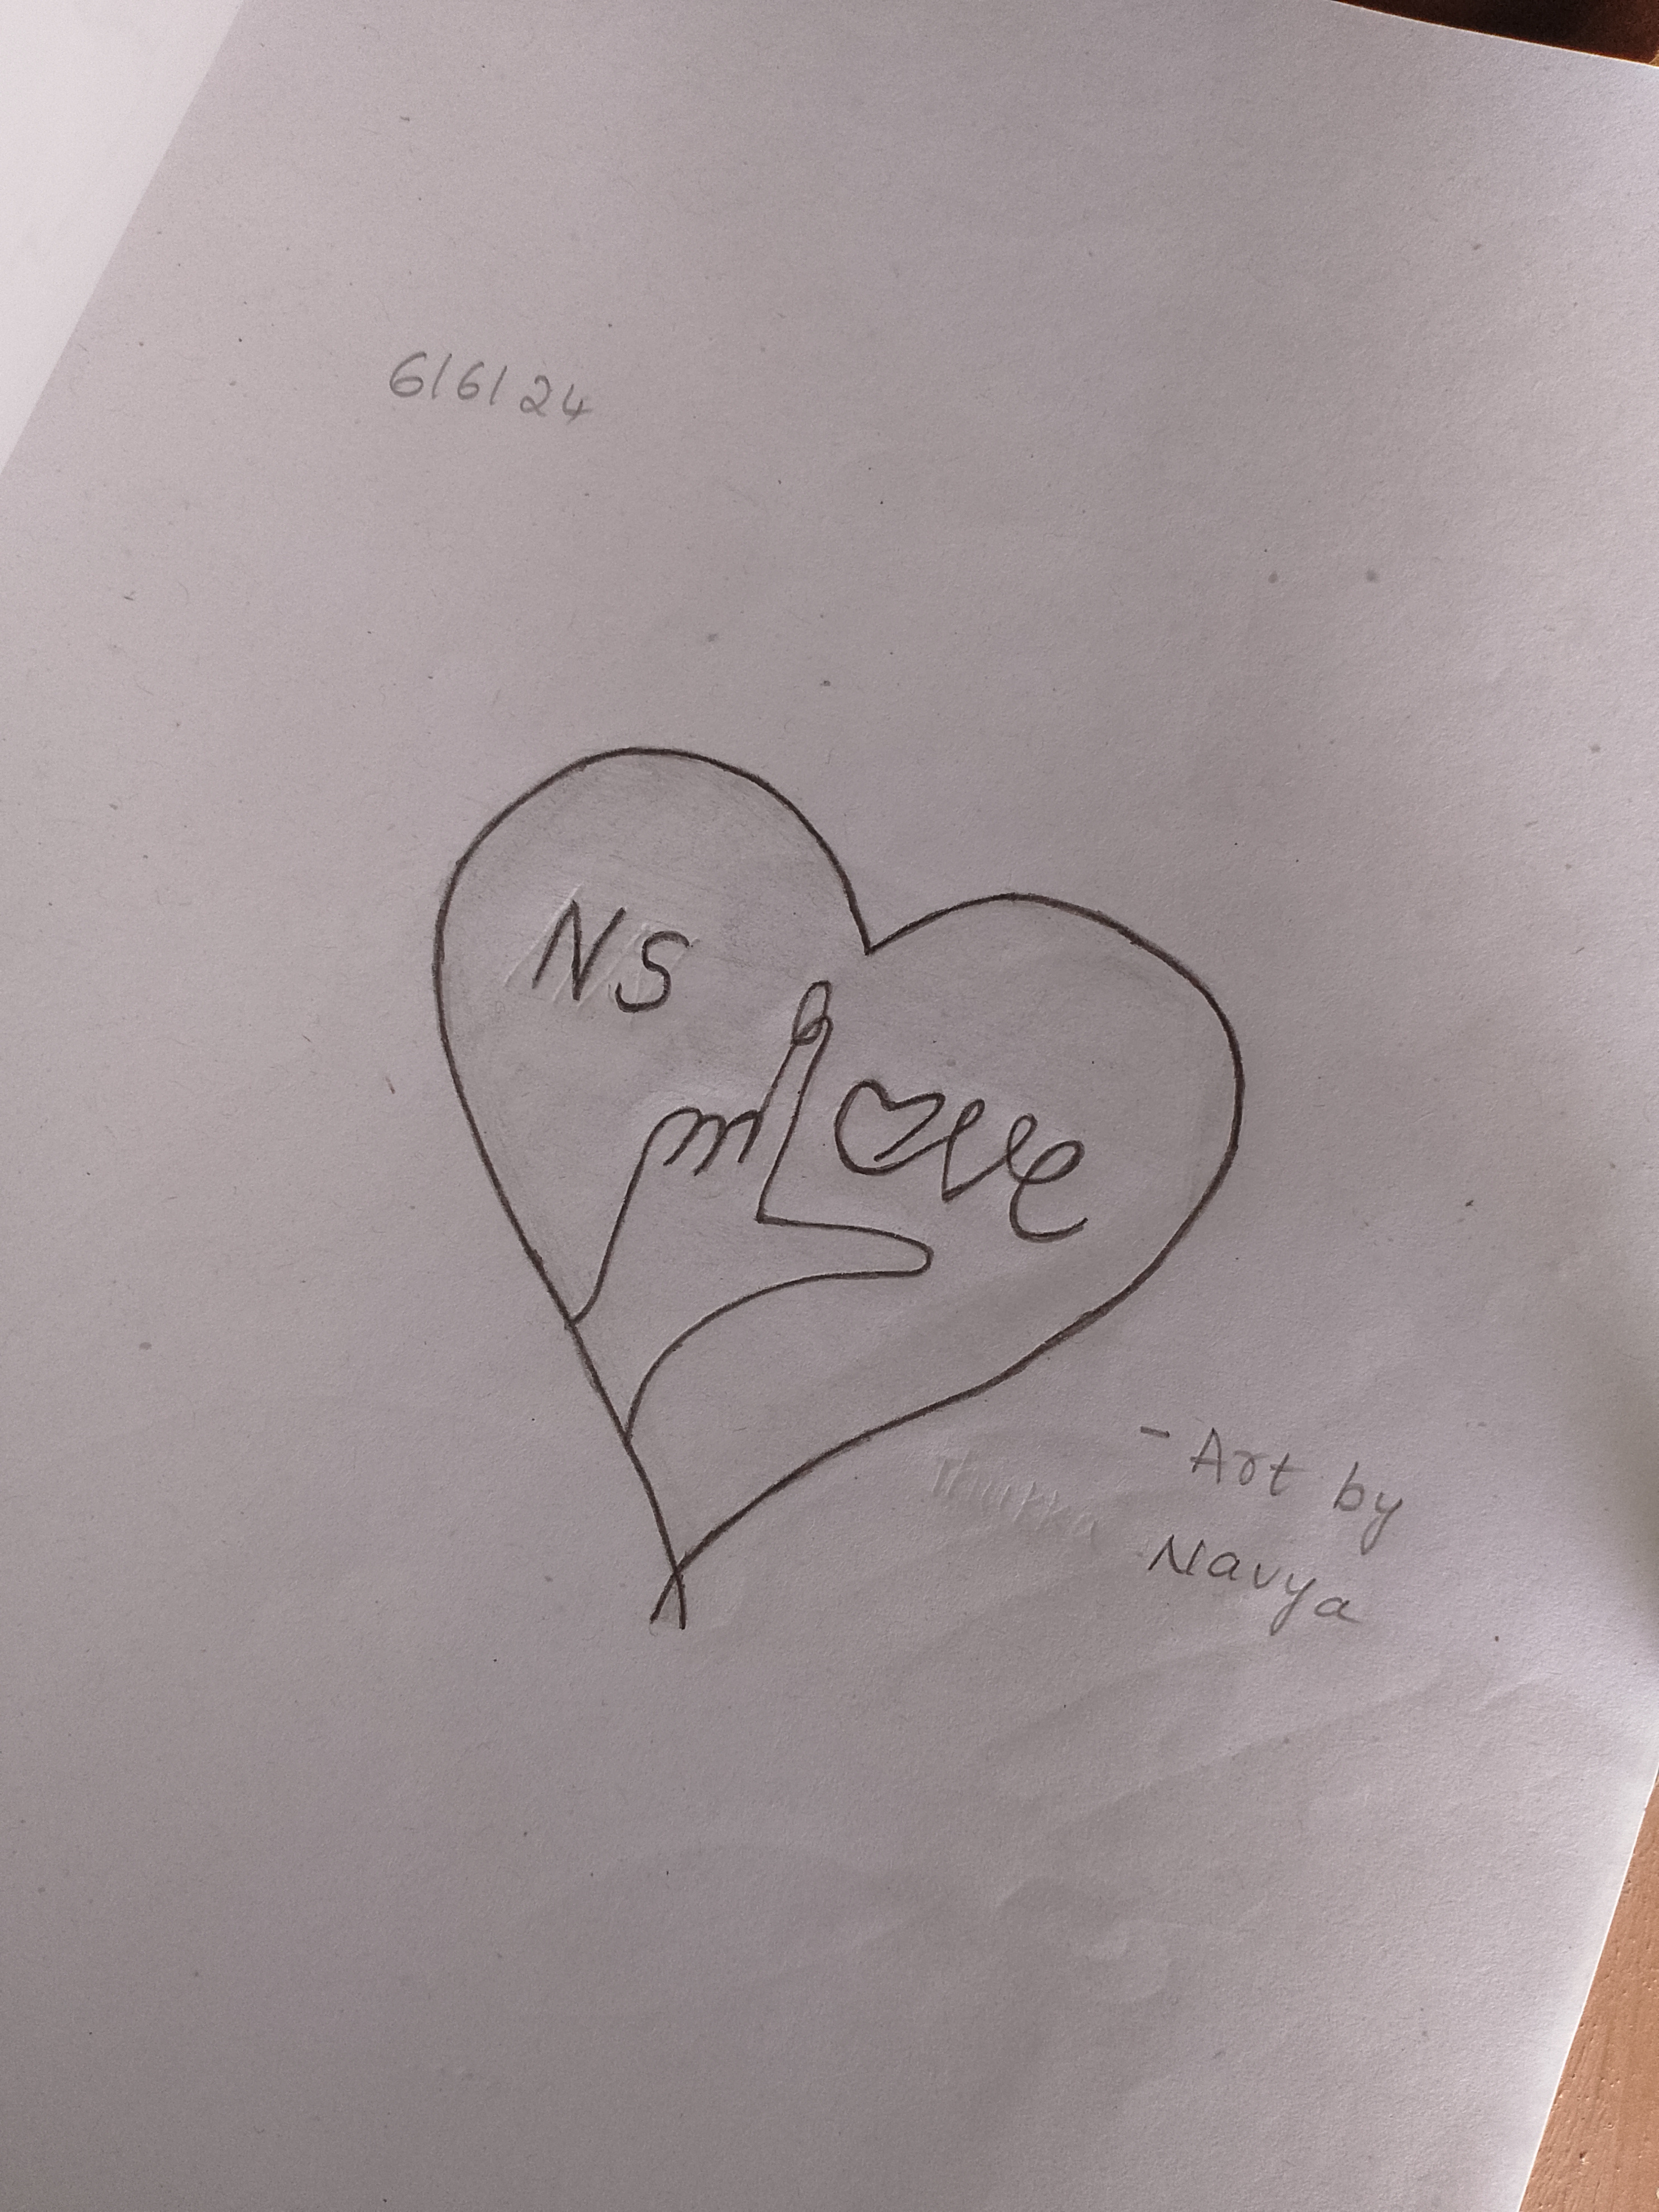 6/6/24
NS
Love
- Art by
Navya